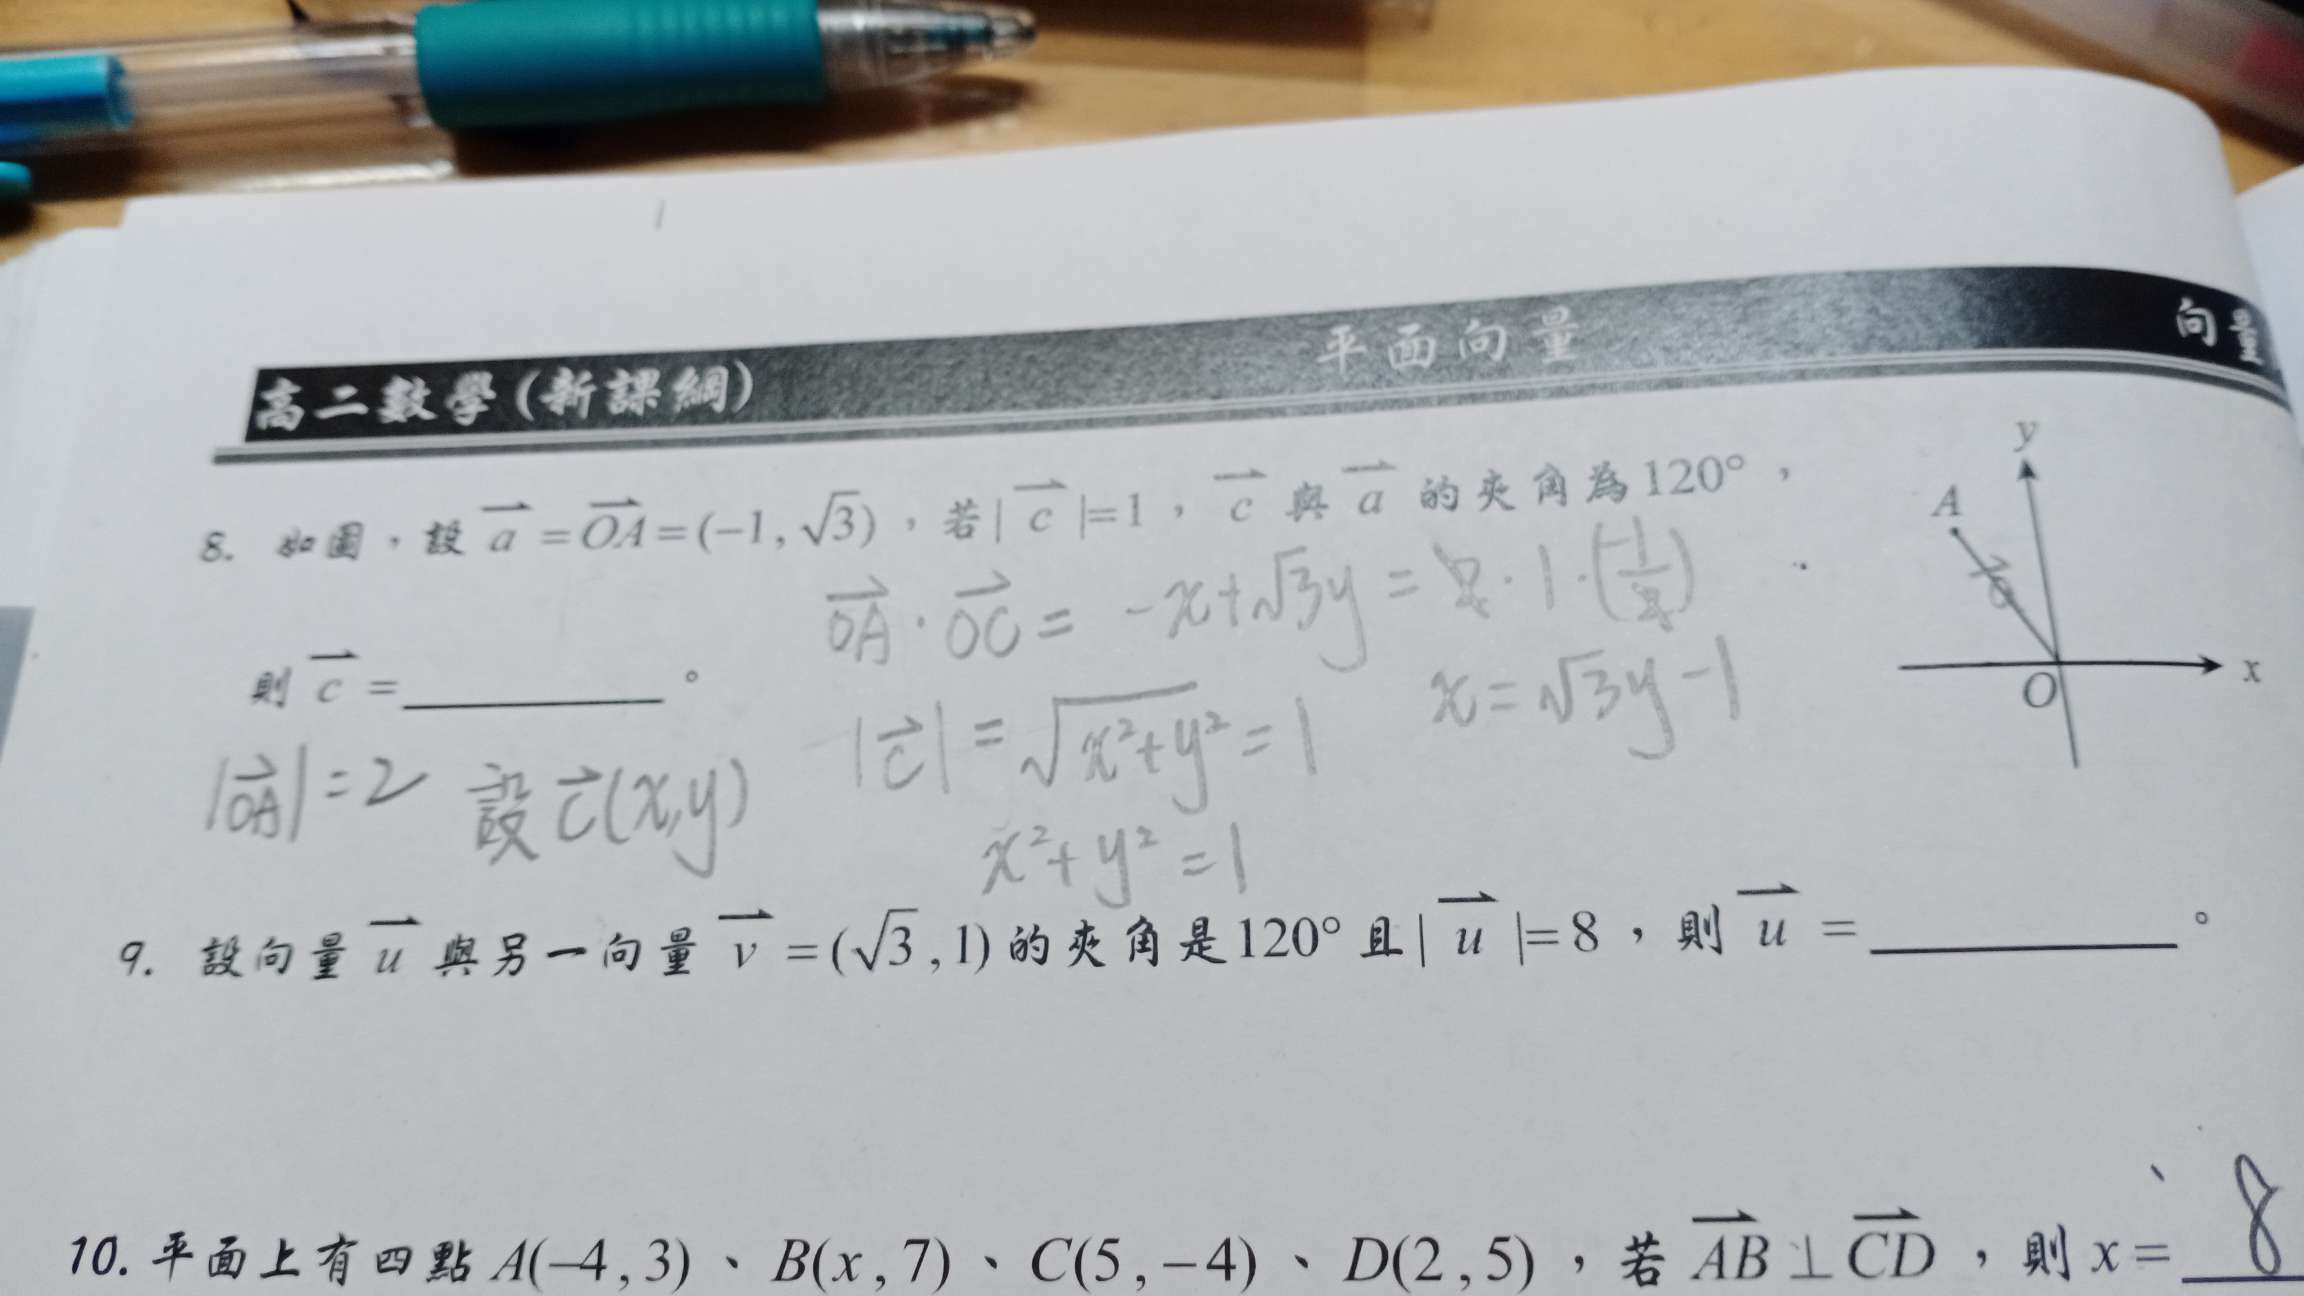 高二數學(新課綱) 平面向量 向量
8. 如圖，設 a = OA = (−1, √3)，若| c |=1， c 與 a 的夾角為120°，
y
A
a
O
x
OA · OC = −x+√3y = 2·1·(−1/2)
則 c = ______。
x = √3y −1
|OA| = 2 設 c(x,y)
|c| = √x²+y² = 1
x²+y² = 1
9. 設向量 u 與另一向量 v = (√3, 1) 的夾角是120° 且 | u |= 8，則 u = ______。
10. 平面上有四點 A(−4, 3)、B(x, 7)、C(5, −4)、D(2, 5)，若 AB ⊥ CD，則 x = 8